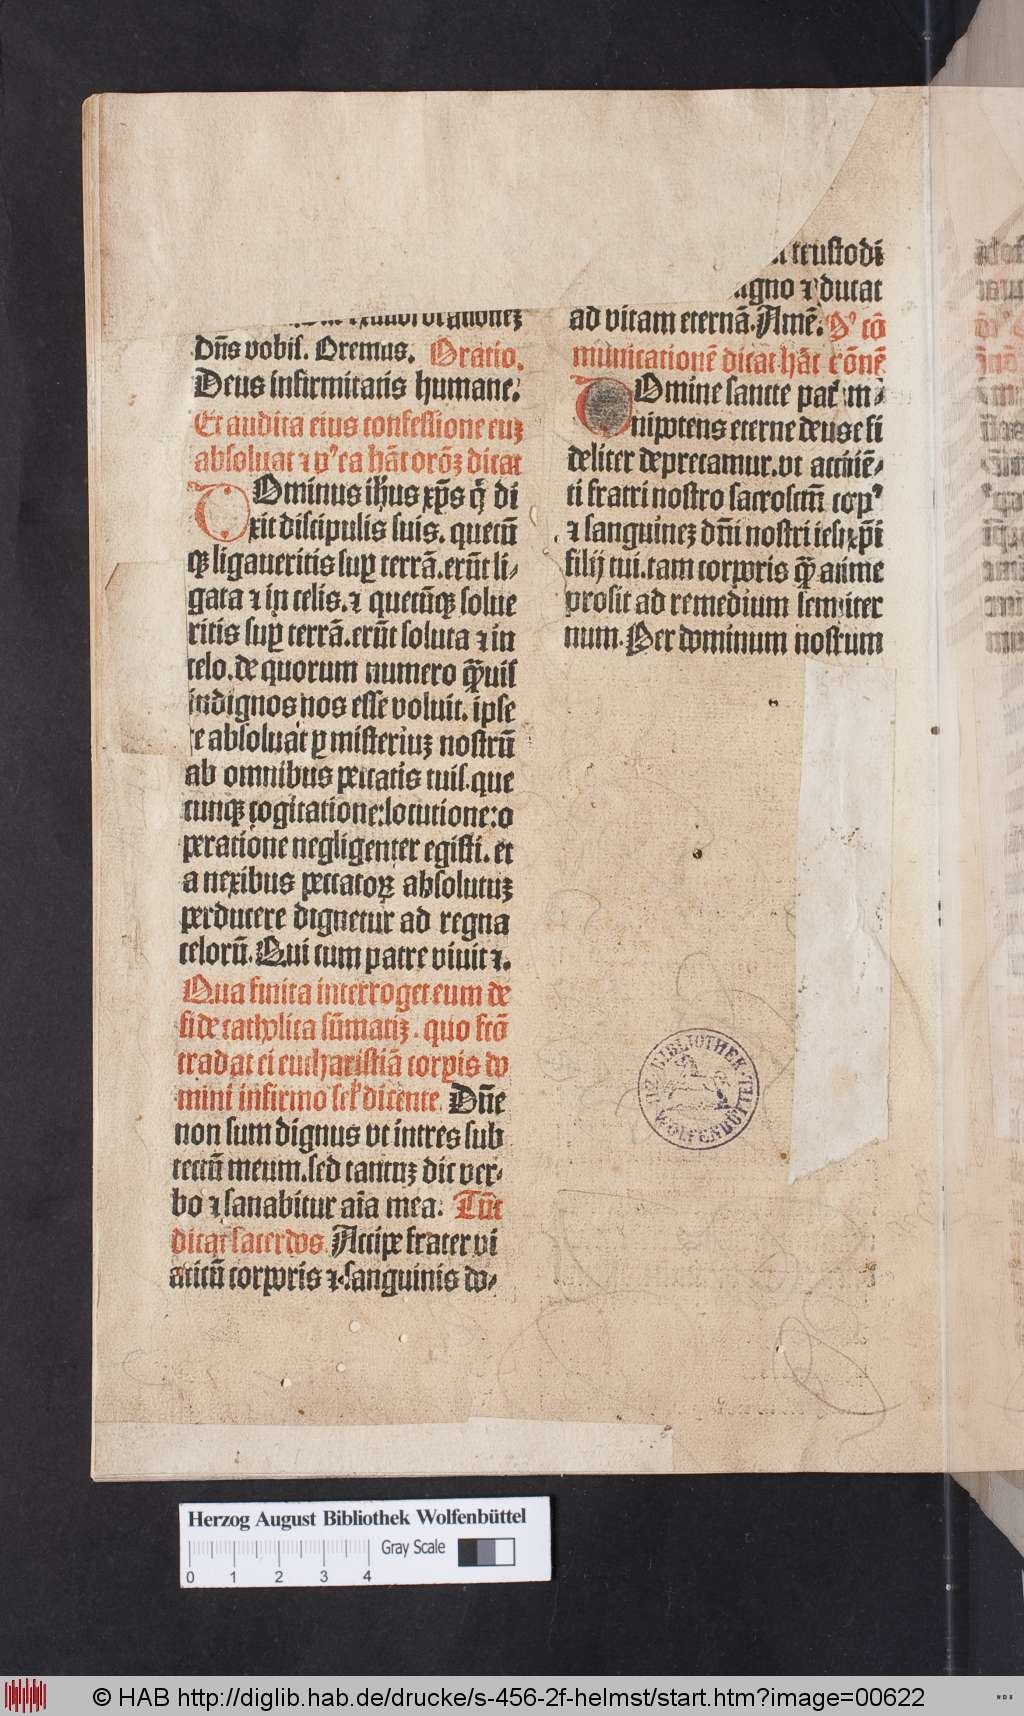 Dn̄s vobiſ. Oremus. Oratio.
Deus infirmitatis humane.
Et audita eius confeſſione euꝫ
abſoluat ⁊ pꝰea hāc orōꝫ dicat
DOminus ihūs xp̄s q̄ di
xit diſcipulis ſuis. quecū
qꝫ ligaueritis ſuꝑ terrā. erūt li⸗
gata ⁊ in celis. ⁊ quecūqꝫ ſolue
ritis ſuꝑ terrā. erūt ſoluta ⁊ in
celo. de quorum numero q̄uiſ
indignos nos eſſe voluit. ipſe
te abſoluat ꝑ miſteriuꝫ noſtrū
ab omnibus peccatis tuiſ. que
cunqꝫ cogitatione: locutione: o
peratione negligenter egiſti. et
a nexibus peccatoꝝ abſolutuꝫ
perducere dignetur ad regna
celorū. Qui cum patre viuit ⁊.
Qua finita interroget eum de
fide catholica ſūmatiꝫ. quo fcō
tradat ei euchariſtiā corpis do
mini infirmo ſeꝉ dicente. Dn̄e
non ſum dignus vt intres ſub
tectū meum. ſed tantuꝫ dic ver⸗
bo ⁊ ſanabitur aīa mea. Tūc
dicat ſacerdos. Accipe frater vi
aticū corporis ⁊ ſanguinis do⸗
cuſtodi
⁊ ducat
ad vitam eternā. Amē. Pꝰ cō
municationē dicat hāc ōnē
DOmine ſancte pat̄ m⸗
nipotens eterne deus te fi
deliter deprecamur. vt accipiē⸗
ti fratri noſtro ſacroſctm̄ corpꝰ
⁊ ſanguineꝫ dn̄i noſtri ieſu xp̄i
filij tui. tam corporis q̄ꝫ anime
proſit ad remedium ſempiter
num. Per dominum noſtrum
BIBLIOTHEK
WOLFENBÜTTEL
Herzog August Bibliothek Wolfenbüttel
Gray Scale
0 1 2 3 4
© HAB http://diglib.hab.de/drucke/s-456-2f-helmst/start.htm?image=00622